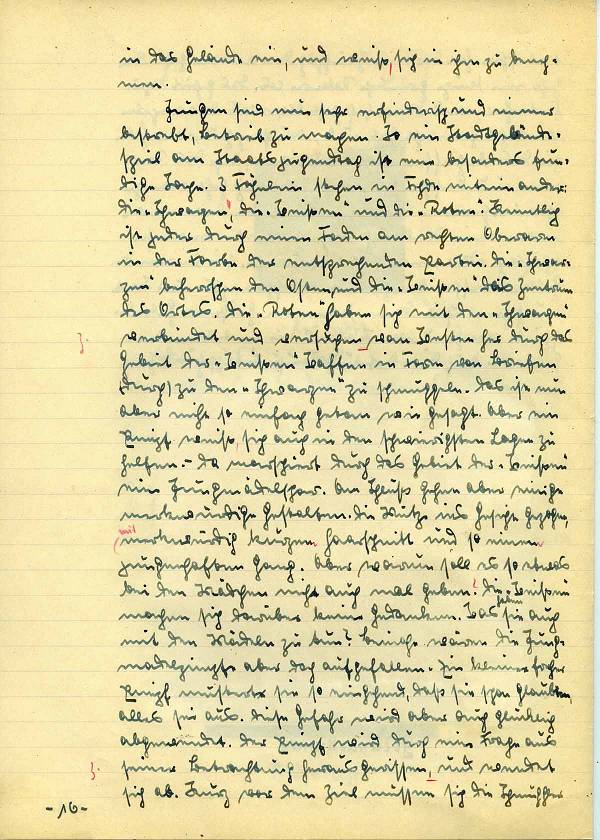 in das Gelände ein, und weiß, sich in ihm zu beneh-
men.
Jungen sind nun sehr erfinderisch und immer
bestrebt, Betrieb zu machen. So ein Stadtgelände-
spiel am Staatsjugendtag ist eine besonders pfun-
dige Sache. 3 Fähnlein stehen in Fehde miteinander:
die „Schwarzen", die „Weißen" und die „Roten". Kenntlich
ist jeder durch einen Faden am rechten Oberarm
in der Farbe der entsprechenden Partei. Die „Schwar-
zen" beherrschen den Osten und die „Weißen" das Zentrum
des Ortes. Die „Roten" haben sich mit den „Schwarzen"
verbündet und versuchen, von Westen her durch das
Gebiet der „Weißen" Waffen in Form von Briefen
(durch) zu den „Schwarzen" zu schmuggeln. Das ist nun
aber nicht so einfach getan wie gesagt. Aber ein
Pimpf weiß sich auch in den schwierigsten Lagen zu
helfen. - Da marschiert durch das Gebiet der „Weißen"
eine Jungmädelschar. Am Schluß gehen aber einige
merkwürdige Gestalten. Die Mütze ins Gesicht gezogen,
mit
merkwürdig kurzem Haarschnitt und so einem
jungenhaften Gang. Aber warum soll es so etwas
bei den Mädchen nicht auch mal geben? Die „Weißen"
machen sich darüber keine Gedanken. Was
haben
sie auch
mit den Mädeln zu tun? Beinahe wären die Jung-
mädelpimpfe aber doch aufgefallen. Ein kleiner frecher
Pimpf musterte sie so eingehend, daß sie schon glaubten,
alles sei aus. Diese Gefahr wird aber auch glücklich
abgewendet. Der Pimpf wird durch eine Frage aus
seiner Betrachtung herausgerissen, und wendet
sich ab. Kurz vor dem Ziel müssen sich die Schmugg-
-16-